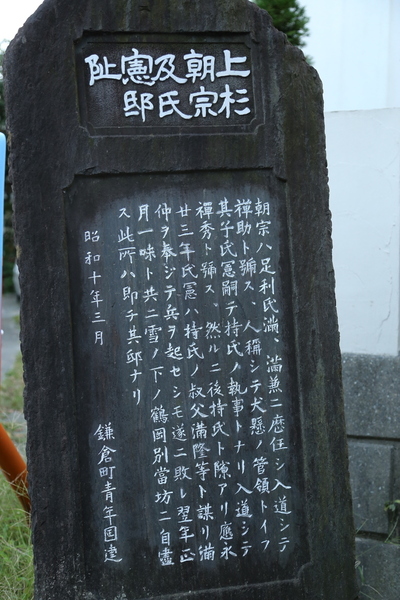 上杉
朝宗
及氏
憲邸
阯
朝宗ハ足利氏満、満兼ニ歴任シ入道シテ
禅助ト號ス、人稱シテ犬懸ノ管領トイフ
其子氏憲嗣テ持氏ノ執事トナリ入道シテ
禅秀ト號ス、然ルニ後持氏ト隙アリ應永
廿三年氏憲ハ持氏ノ叔父満隆等ト謀リ満
仲ヲ奉ジテ兵ヲ起セシモ遂ニ敗レ翌年正
月一味ト共ニ雪ノ下ノ鶴岡別當坊ニ自盡
ス此所ハ即チ其邸ナリ
昭和十年三月
鎌倉町青年團建